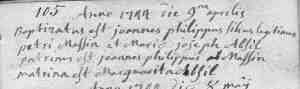 105 Anno 1744 die 9na aprilis
Baptizatus est joannes philippus filius legitimus
petri Massin et Marie joseph Absil
patrinus est joannes philippus Massin
matrina est Margaarita Absil
Anno 1744 die maÿ